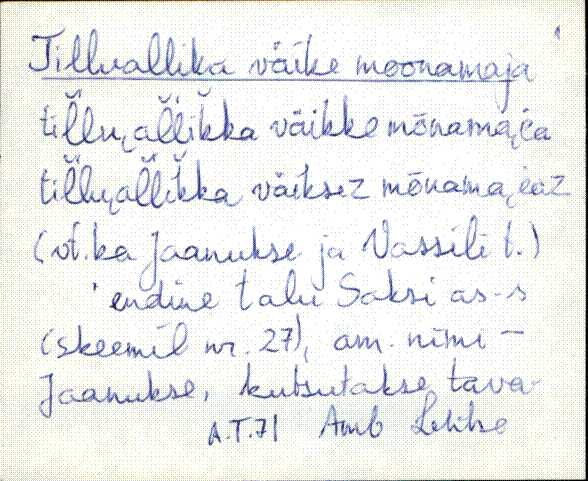 Tilluallika väike moonamaja
til̆l̆u̯al̆l̆ik̆ka väikke mōnamai̯a
til̆l̆u̯al̆l̆ik̆ka väiksez mōnamai̯az
(vt. ka Jaanukse ja Vassili t.)
endine talu Saksi as-s
(skeemil nr. 27), am. nimi –
Jaanukse, kutsutakse tava-
A.T. 71 Amb Lehtse